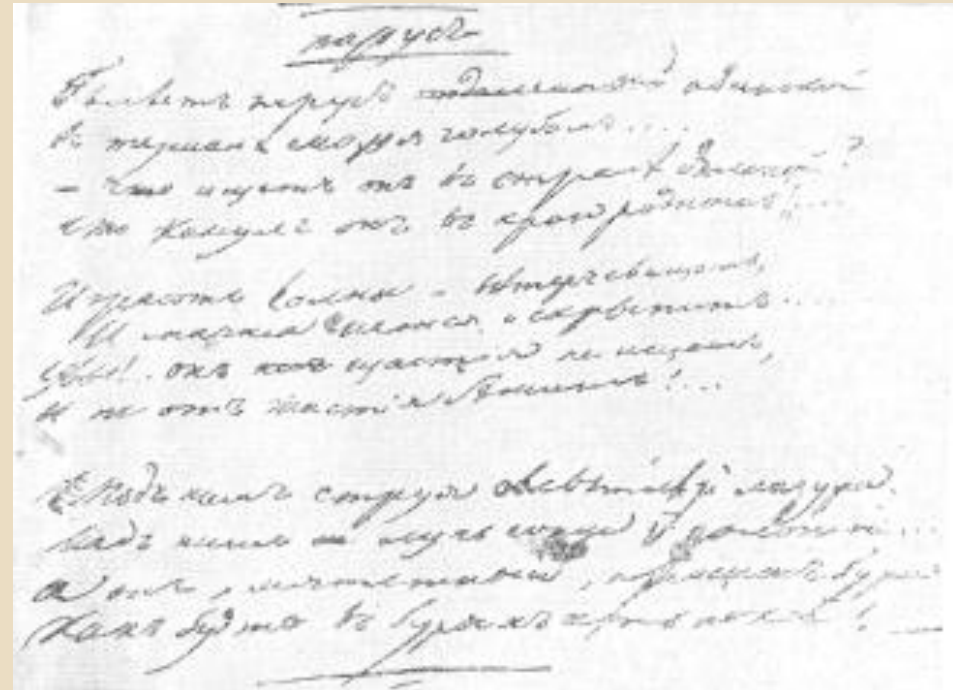 парусъ
Бѣлѣетъ парусъ отдаленный одинокой
въ туманѣ моря голубомъ....
— Что ищетъ онъ въ странѣ далекой?
Что кинулъ онъ въ краю родномъ?...
Играютъ волны – вѣтеръ свищетъ,
И мачта гнется и скрыпитъ...
Увы!.. онъ щастія не ищетъ,
И не отъ щастія бѣжитъ!...
Подъ нимъ струя свѣтлѣй лазури.
Надъ нимъ лучь солнца золотой...
а онъ, мятежный, проситъ бури
Какъ будто въ буряхъ есть покой!